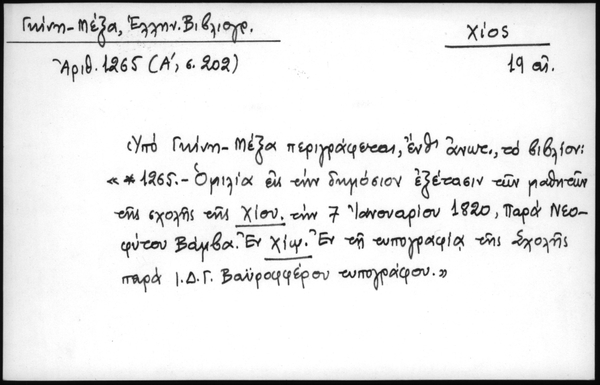 Γκίνη-Μέξα, Ἑλλην. Βιβλιογρ.
Χίος
Ἀριθ. 1265 (Α', σ. 202)
19 αἰ.
Ὑπό Γκίνη-Μέξα περιγράφεται, ἔνθ' ἄνωτ., τό βιβλίον:
«*1265.- Ὁμιλία εἰς τήν δημόσιον ἐξέτασιν τῶν μαθητῶν
τῆς σχολῆς τῆς Χίου. τήν 7 Ἰανουαρίου 1820, παρά Νεο-
φύτου Βάμβα. Ἐν Χίῳ. Ἐν τῇ τυπογραφίᾳ τῆς Σχολῆς
παρά Ι.Δ.Γ. Βαϋροφφέρου τυπογράφου.»